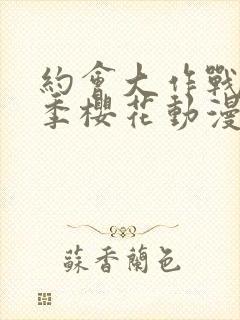 約會大作戰
季櫻花動漫
蘇香蘭色